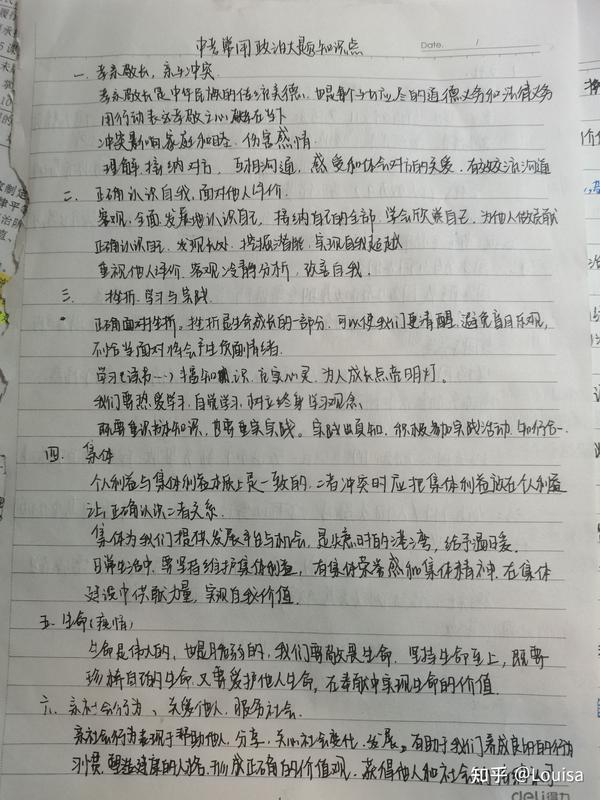 中考常用政治大题知识点
Date. /
一. 孝亲敬长, 亲子冲突
孝亲敬长是中华民族的传统美德, 也是每个公民应尽的道德义务和法律义务
用行动表达孝敬之心, 敬在当下
冲突影响家庭和睦, 伤害感情
理解、接纳对方, 互相沟通, 感受和体会对方的关爱, 有效交流沟通
二. 正确认识自我, 面对他人评价.
客观、全面、发展地认识自己, 接纳自己的全部, 学会欣赏自己, 为他人做贡献
正确认识自己, 发现长处, 挖掘潜能, 实现自我超越
重视他人评价, 客观冷静分析, 改善自我.
三. 挫折、学习与实践
正确面对挫折。挫折是生命成长的一部分, 可以使我们更清醒, 避免盲目乐观,
不恰当面对将会产生负面情绪.
学习(读书…)丰富知识, 充实心灵, 为人成长点亮明灯。
我们要热爱学习, 自觉学习, 树立终身学习观念,
既要重视书本知识, 也要重实实践。实践出真知, 积极参加实践活动, 知行合一.
四. 集体
个人利益与集体利益本质上是一致的, 二者冲突时应把集体利益放在个人利益
让, 正确认识二者关系.
集体为我们提供发展平台与机会, 是失意时的港湾, 给予温暖.
日常生活中, 要坚持维护集体利益, 有集体荣誉感和集体精神, 在集体
建设中供献力量, 实现自我价值.
五. 生命(疫情)
生命是伟大的, 也是脆弱的, 我们要敬畏生命, 坚持生命至上, 既要
珍惜自己的生命, 又要爱护他人生命, 在奉献中实现生命的价值
六. 亲社会行为、关爱他人、服务社会.
亲社会行为表现于帮助他人, 分享, 关心社会变化、发展。有助于我们养成良好的行为
习惯, 塑造健康的人格, 形成正确的价值观, 获得他人和社会的
知乎 @Louisa
deli得力